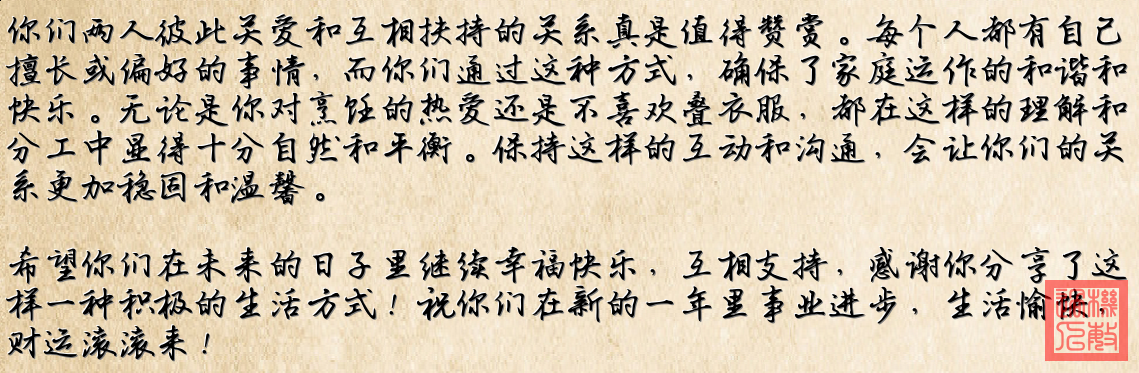 你们两人彼此关爱和互相扶持的关系真是值得赞赏。每个人都有自己
擅长或偏好的事情，而你们通过这种方式，确保了家庭运作的和谐和
快乐。无论是你对烹饪的热爱还是不喜欢叠衣服，都在这样的理解和
分工中显得十分自然和平衡。保持这样的互动和沟通，会让你们的关
系更加稳固和温馨。
希望你们在未来的日子里继续幸福快乐，互相支持，感谢你分享了这
样一种积极的生活方式！祝你们在新的一年里事业进步，生活愉快，
财运滚滚来！